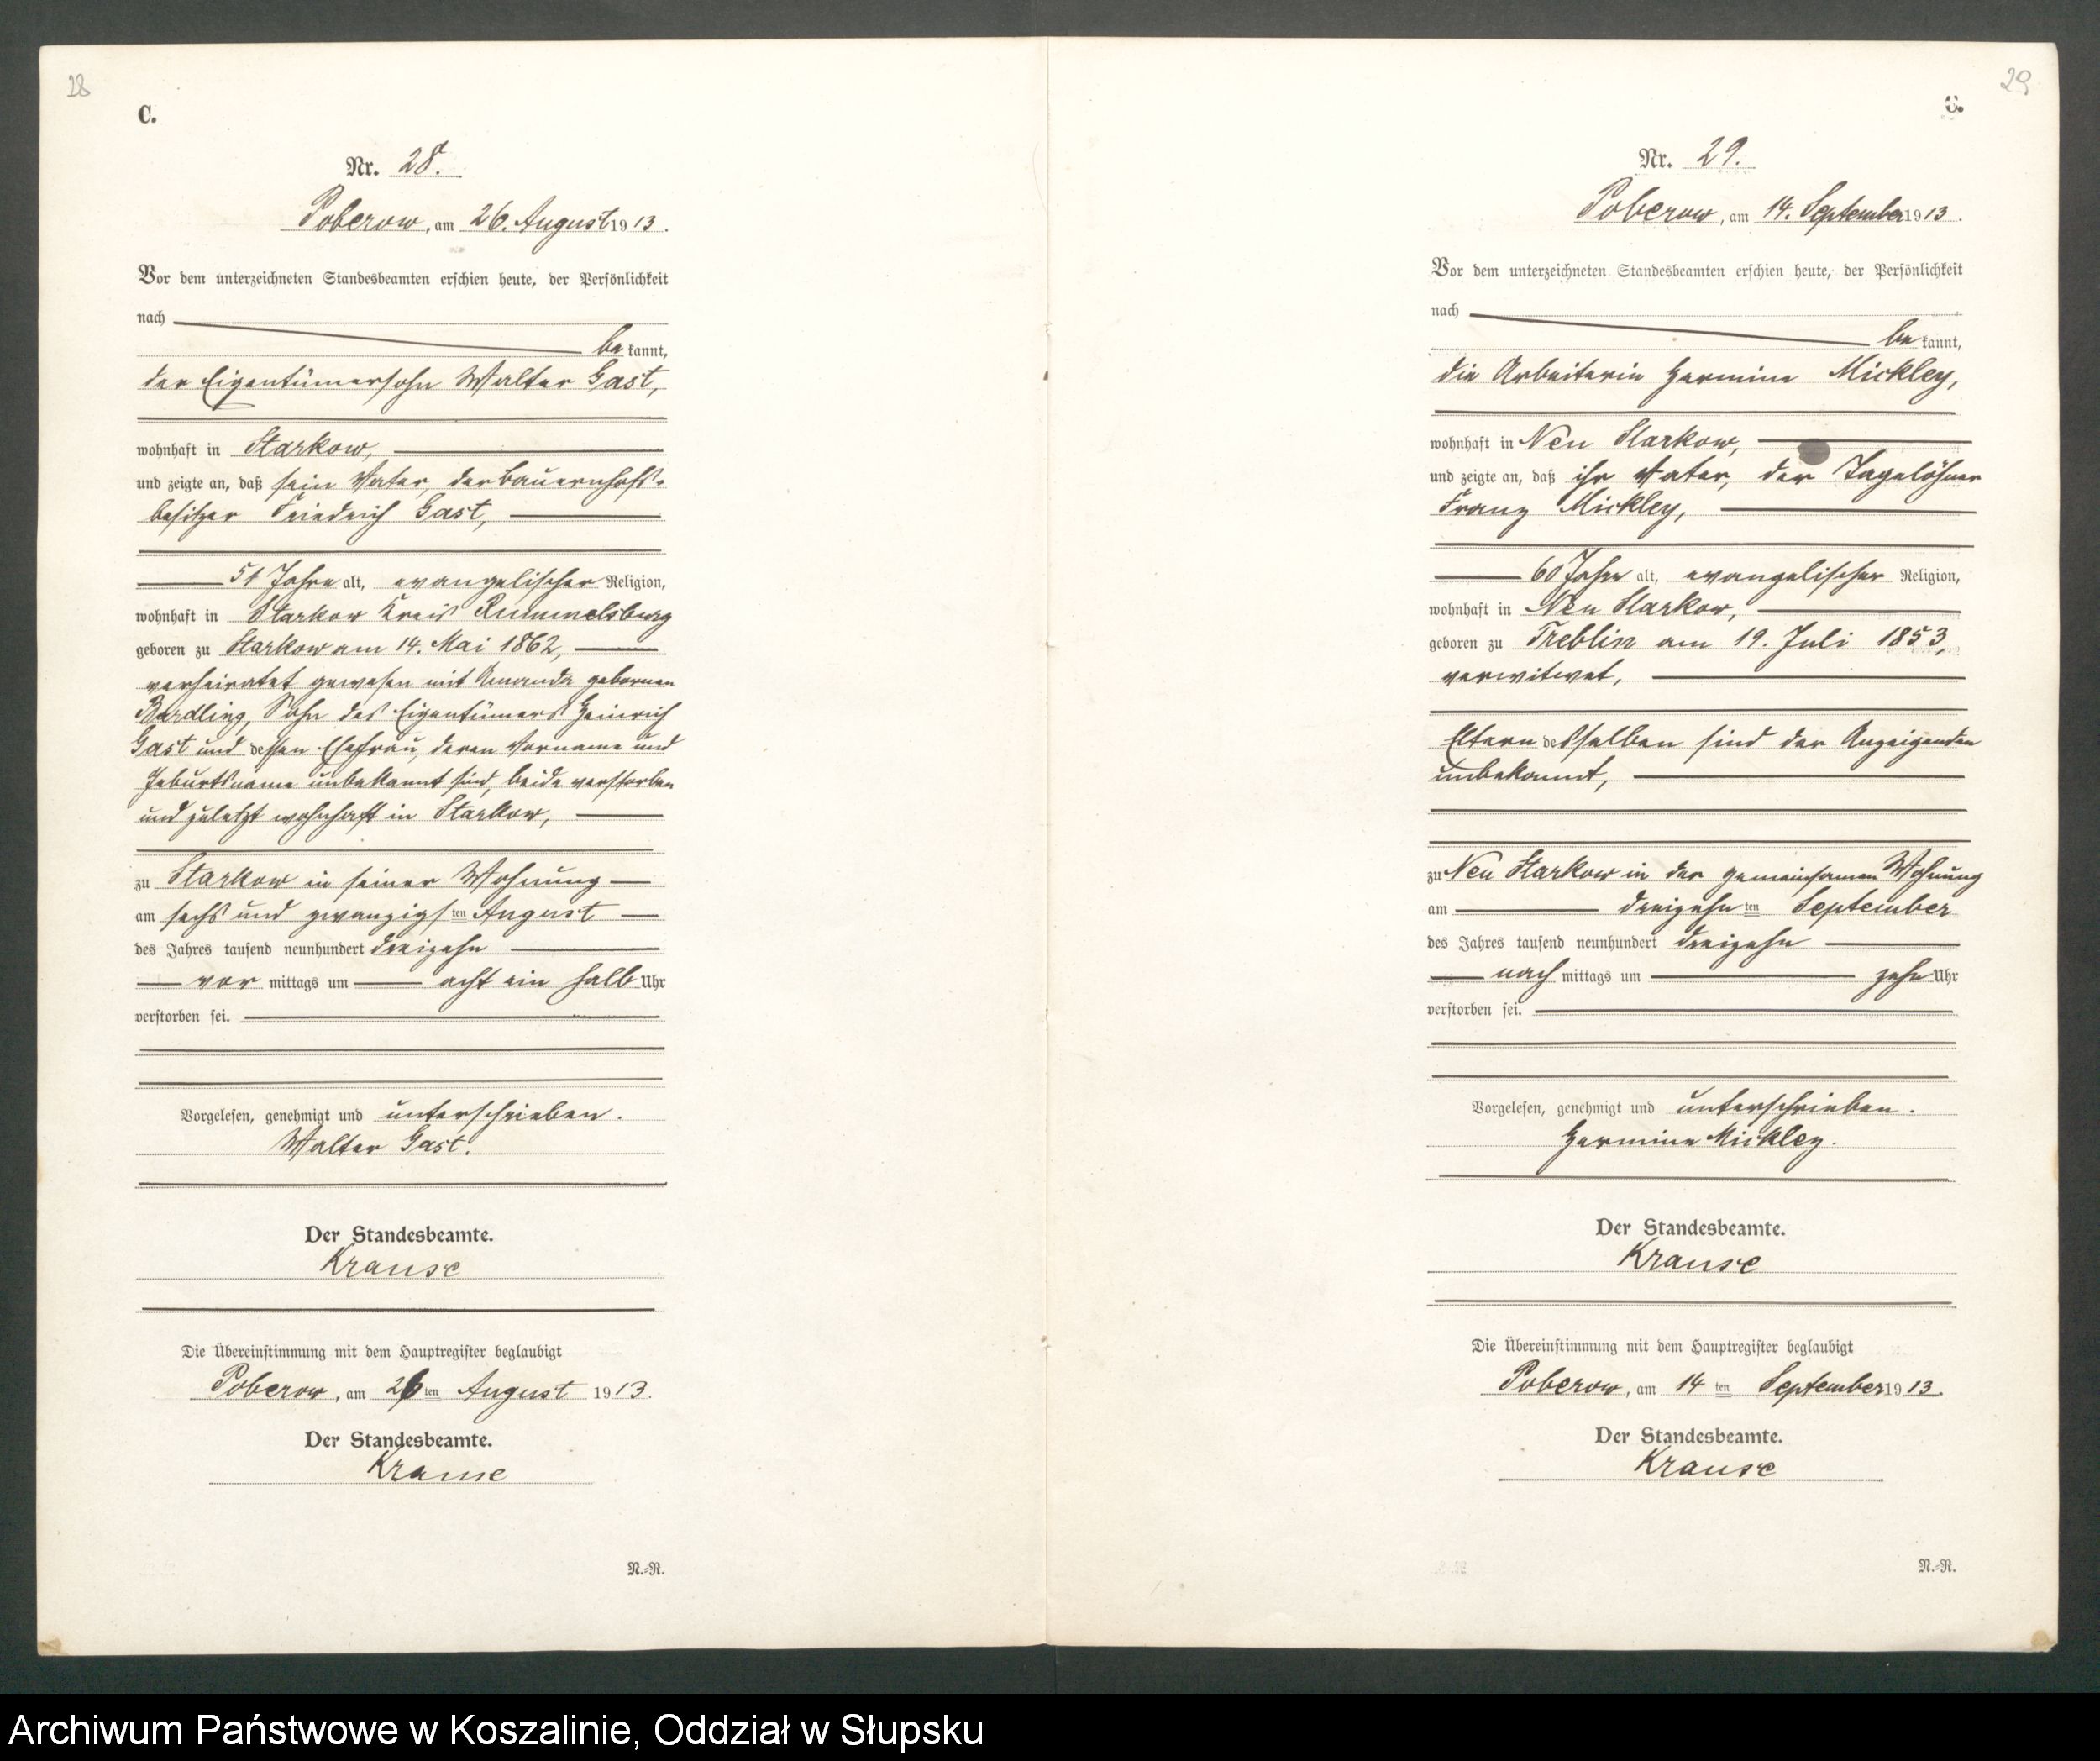 28
C.
Nr. 28.
Poberow, am 26. August 1913.
Vor dem unterzeichneten Standesbeamten erschien heute, der Persönlichkeit
nach
bekannt,
der Eigentümersohn Walter Gast,
wohnhaft in Starkow,
und zeigte an, daß sein Vater, der Bauernhofs-
besitzer Friedrich Gast,
51 Jahre alt, evangelischer Religion,
wohnhaft in Starkow Kreis Rummelsburg
geboren zu Starkow am 14. Mai 1862,
verheiratet gewesen mit Amanda gebornen
Bardling, Sohn des Eigentümers Heinrich
Gast und dessen Ehefrau, deren Vorname und
Geburtsname unbekannt sind, beide verstorben
und zuletzt wohnhaft in Starkow,
zu Starkow in seiner Wohnung
am sechs und zwanzigsten August
des Jahres tausend neunhundert dreizehn
vormittags um acht ein halb Uhr
verstorben sei.
Vorgelesen, genehmigt und unterschrieben.
Walter Gast.
Der Standesbeamte.
Krause
Die Übereinstimmung mit dem Hauptregister beglaubigt
Poberow, am 26ten August 1913.
Der Standesbeamte.
Krause
N.-R.
29
C.
Nr. 29.
Poberow, am 14. September 1913.
Vor dem unterzeichneten Standesbeamten erschien heute, der Persönlichkeit
nach
bekannt,
die Arbeiterin Hermine Mickley,
wohnhaft in Neu Starkow,
und zeigte an, daß ihr Vater, der Tagelöhner
Franz Mickley,
60 Jahre alt, evangelischer Religion,
wohnhaft in Neu Starkow,
geboren zu Treblin am 19. Juli 1853,
verwitwet,
Eltern desselben sind der Anzeigenden
unbekannt,
zu Neu Starkow in der gemeinsamen Wohnung
am dreizehnten September
des Jahres tausend neunhundert dreizehn
nachmittags um zehn Uhr
verstorben sei.
Vorgelesen, genehmigt und unterschrieben.
Hermine Mickley.
Der Standesbeamte.
Krause
Die Übereinstimmung mit dem Hauptregister beglaubigt
Poberow, am 14ten September 1913.
Der Standesbeamte.
Krause
N.-R.
Archiwum Państwowe w Koszalinie, Oddział w Słupsku